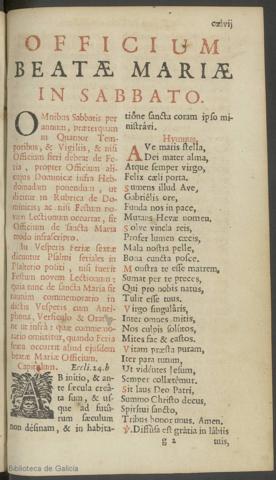 cxlvij
OFFICIUM
BEATÆ MARIÆ
IN SABBATO.
OMnibus Sabbatis per
annum, præterquam
in Quatuor Tem-
poribus, & Vigiliis, & nisi
Officium fieri debeat de Fe-
ria, propter Officium ali-
cujus Dominicæ infra Heb-
domadam ponendum, ut
dicitur in Rubrica de Do-
minicis; ac nisi Festum no-
vem Lectionum occurrat, fit
Officium de sancta Maria
modo infrascripto.
In Vesperis Feriæ sextæ
dicuntur Psalmi feriales in
Psalterio positi, nisi fuerit
Festum novem Lectionum:
quia tunc de sancta Maria fit
tantùm commemoratio in
dictis Vesperis cum Anti-
phona, Versiculo, & Oratio-
ne ut infrà: quæ commemo-
ratio omittitur, quando Feria
sexta occurrit aliud ejusdem
beatæ Mariæ Officium.
Capitulum. Eccli. 24. b
AB initio, & an-
te sæcula creá-
ta sum, & us-
que ad futú-
rum sæculum
non désinam, & in habita-
tióne sancta coram ipso mi-
nistrávi.
Hymnus.
AVe maris stella,
Dei mater alma,
Atque semper virgo,
Felix cœli porta.
Sumens illud Ave,
Gabriélis ore,
Funda nos in pace,
Mutans Hevæ nomen.
Solve vincla reis,
Profer lumen cæcis,
Mala nostra pelle,
Bona cuncta posce.
Monstra te esse matrem,
Sumat per te preces,
Qui pro nobis natus,
Tulit esse tuus.
Virgo singuláris,
Inter omnes mitis,
Nos culpis solútos,
Mites fac & castos.
Vitam præsta puram,
Iter para tutum,
Ut vidéntes Jesum,
Semper collætémur.
Sit laus Deo Patri,
Summo Christo decus,
Spirítui sancto,
Tribus honor unus. Amen.
℣. Diffúsa est grátia in lábiis
g 2 tuis,
Biblioteca de Galicia